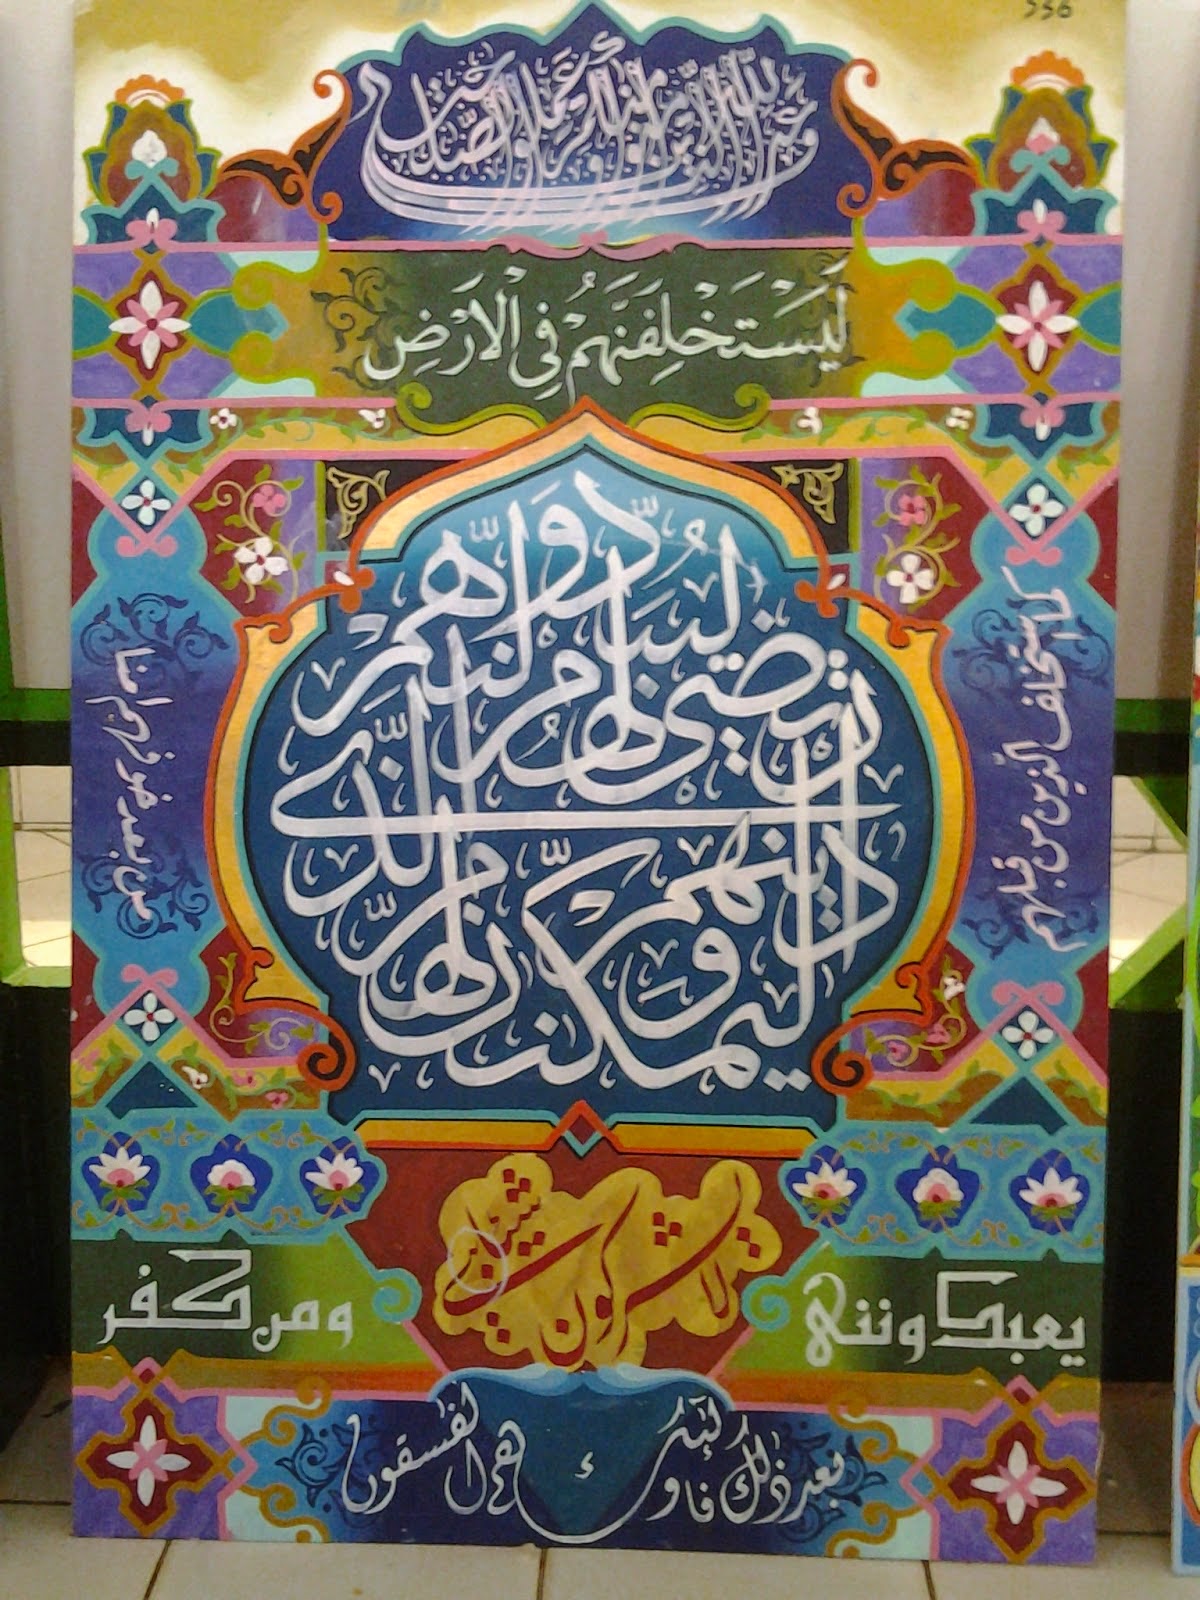 وعد الله الذين امنوا منكم وعملوا الصلحت
لَيَسْتَخْلِفَنَّهُمْ فِي الْاَرْضِ
كما استخلف الذين من قبلهم
وليمكنن لهم دينهم الذي ارتضى لهم وليبدلنهم
من بعد خوفهم امنا
يعبدونني
لا يشركون بي شيئا
ومن كفر
بعد ذلك فاولئك هم الفسقون